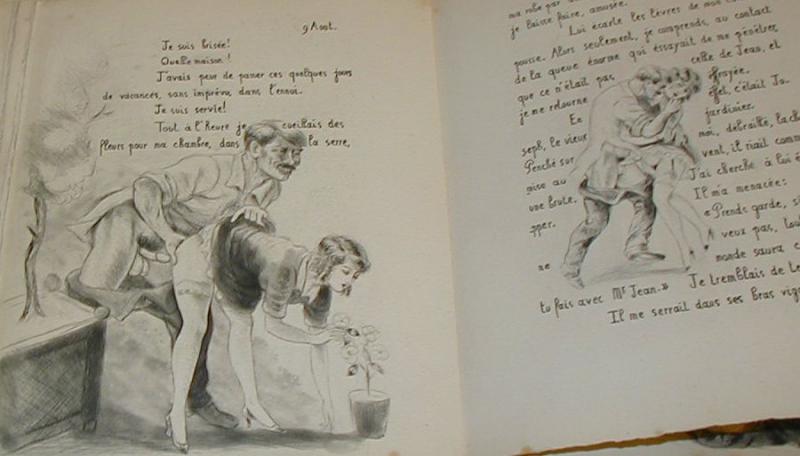 9 Aout.
Je suis brisée!
Quelle maison!
J'avais peur de passer ces quelques jours
de vacances, sans imprévu, dans l'ennui.
Je suis servie!
Tout à l'heure je cueillais des
fleurs pour ma chambre, dans la serre,
ma robe par
je laisse faire, amusée.
Lui écarte les lèvres de mon
pousse. Alors seulement, je comprends, au contact
de la queue énorme qui éssayait de me pénétrer,
que ce n'était pas celle de Jean, et
je me retourne effrayée.
En effet, c'était Jo-
seph, le vieux jardinier.
Penché sur moi, débraillé, la
vent, il riait comm
aise au J'ai cherché à lui
une brute. Il m'a menacée:
« Prends garde, s
pper. veux pas, tou
ne monde saura c
tu fais avec Mr Jean. » Je tremblais de
Il me serrait dans ses bras vig